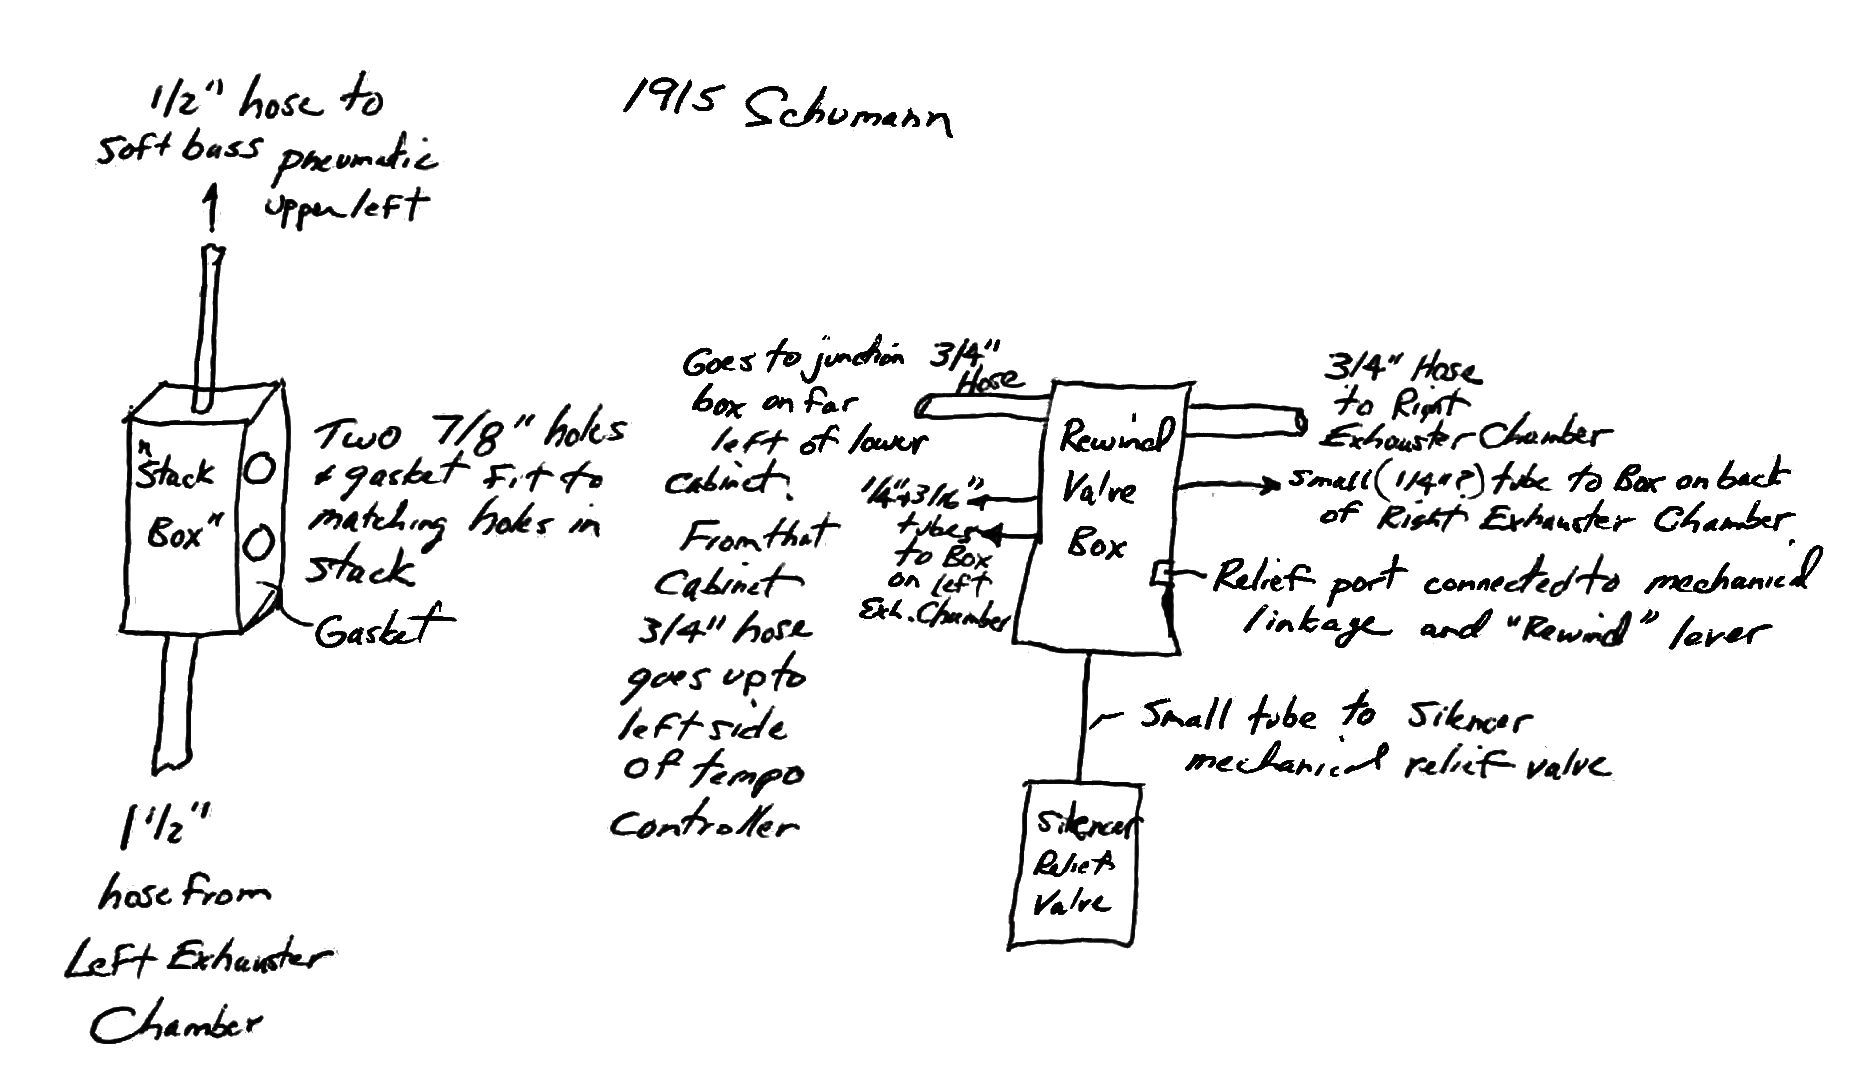 1/2" hose to
soft bass pneumatic
upper left
1915 Schumann
"Stack
Box"
Two 7/8" holes
& gasket fit to
matching holes in
stack
Gasket
1 1/2"
hose from
Left Exhauster
Chamber
Goes to junction
box on far
left of lower
cabinet.
From that
Cabinet
3/4" hose
goes up to
left side
of tempo
controller
3/4"
Hose
1/4" + 3/16"
tubes
to Box
on left
Exh. Chamber
Rewind
Valve
Box
3/4" Hose
to Right
Exhauster Chamber
small (1/4"?) tube to Box on back
of Right Exhauster Chamber.
Relief port connected to mechanical
linkage and "Rewind" lever
Small tube to Silencer
mechanical relief valve
Silencer
Relief
Valve